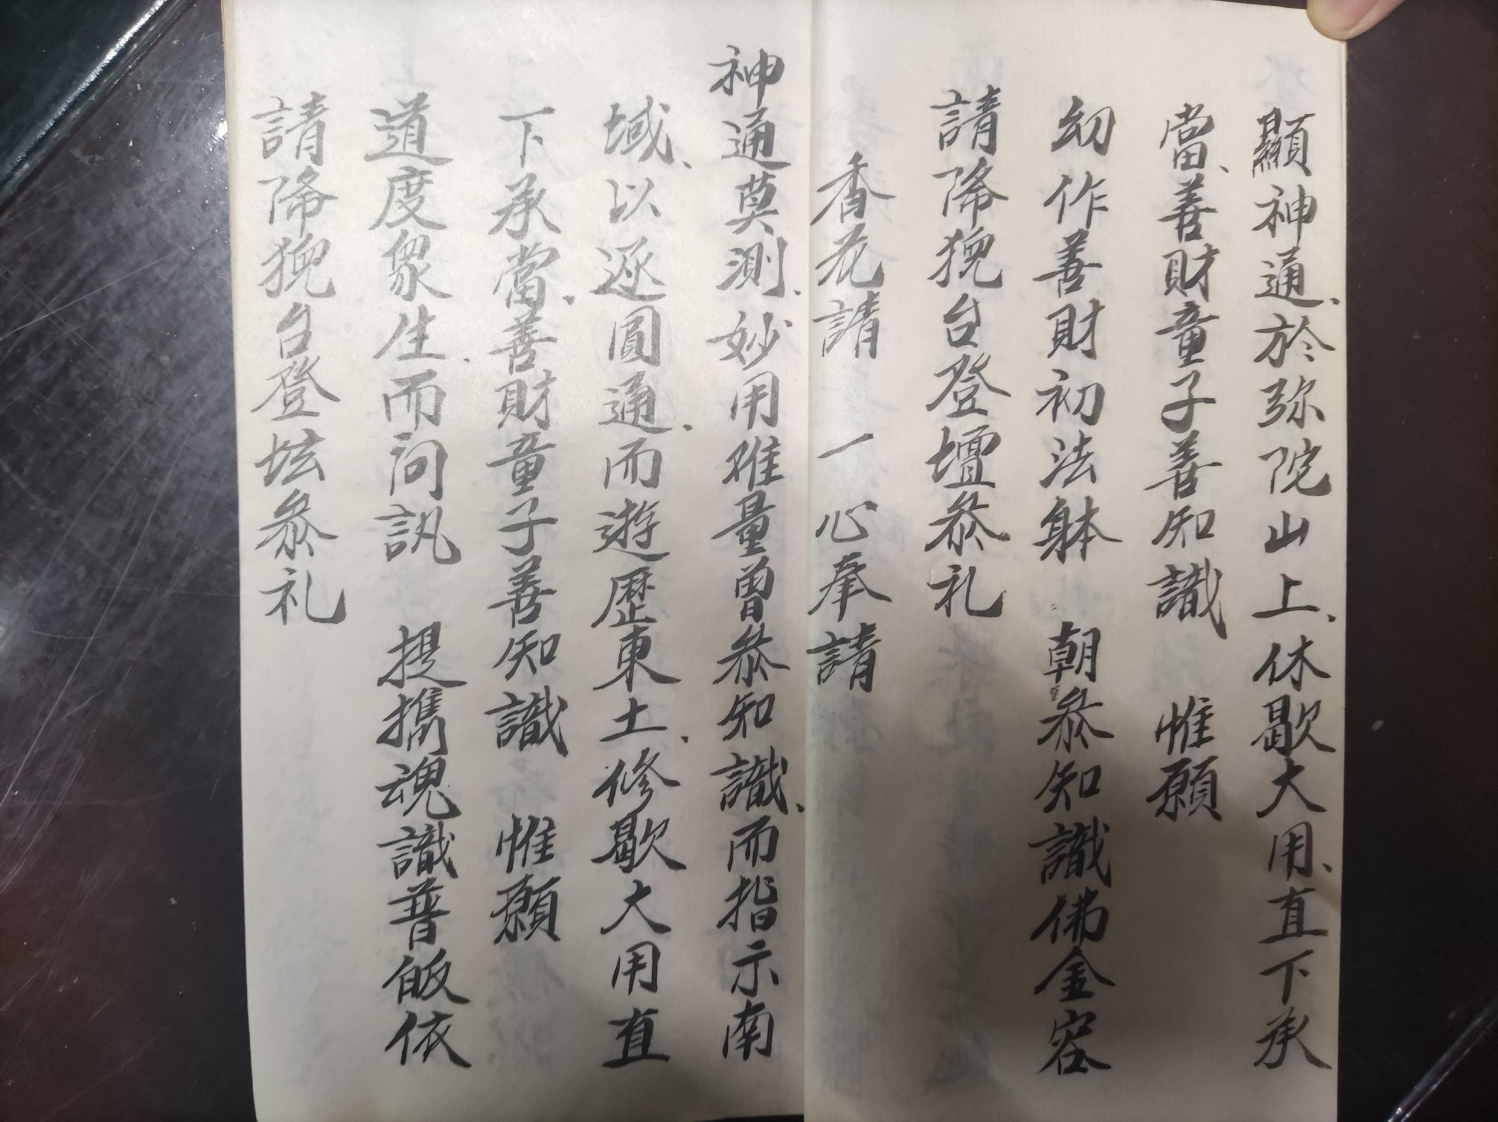 顯神通、於弥陀山上、休歇大用、直下承
當、善財童子善知識　惟願
幼作善財初法躰　朝叅知識佛金容
請降猊台登壇叅礼
香花請　一心奉請
神通莫測、妙用难量曾叅知識、而指示南
域、以逐圓通、而遊歷東土、修歇大用直
下承當、善財童子善知識　惟願
道度衆生、而问訊　提携魂識普皈依
請降猊台登坛叅礼